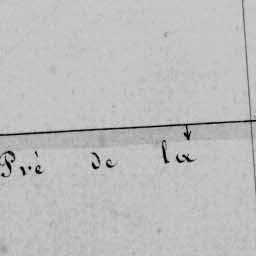 Pré de la